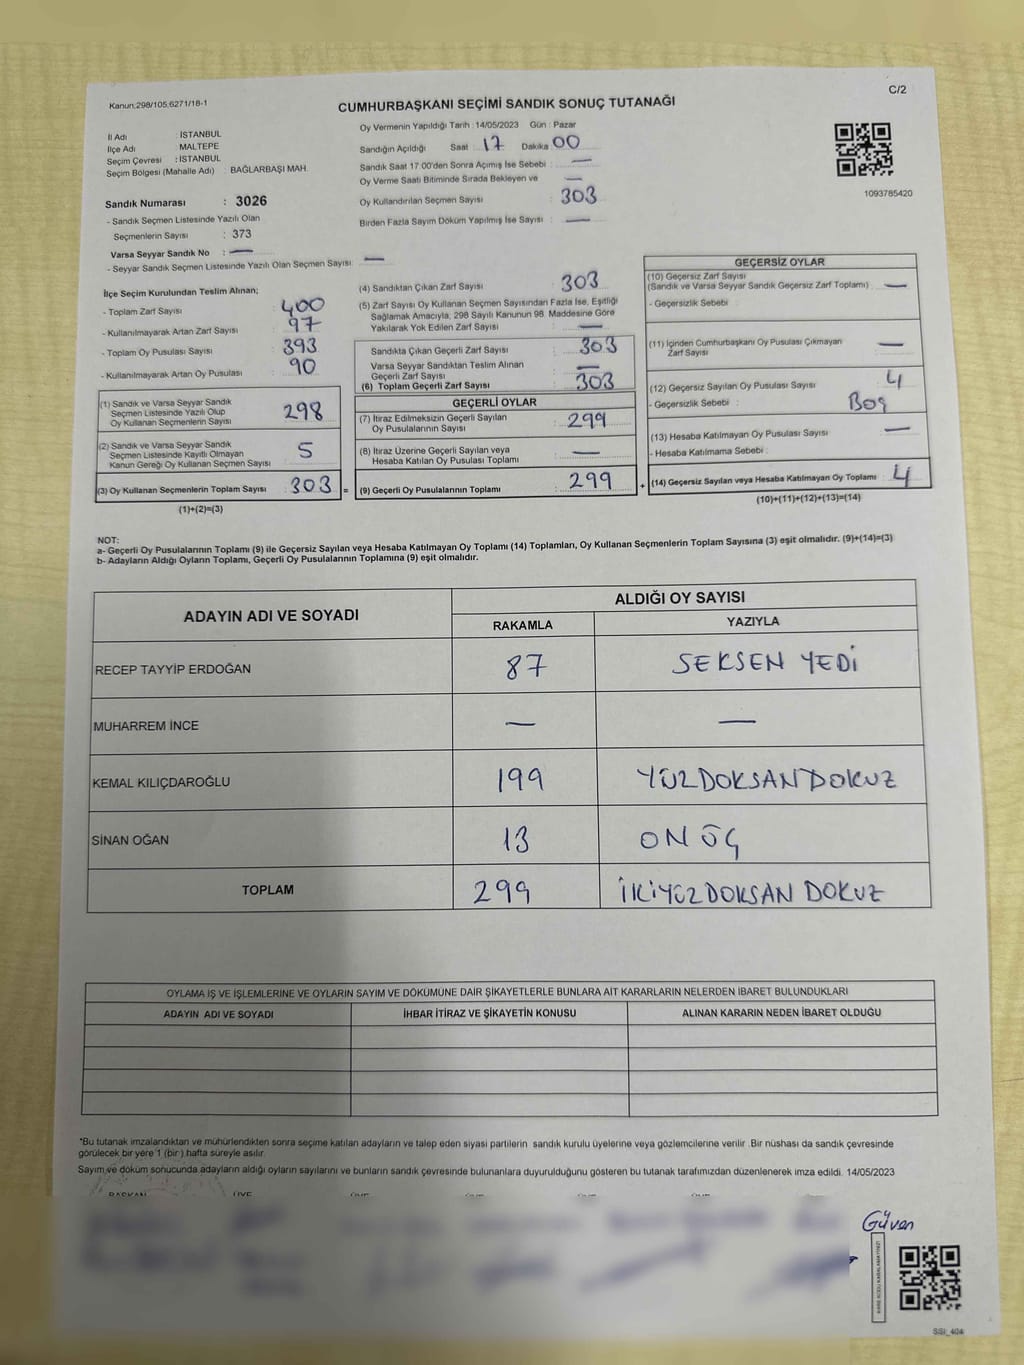 Kanun:298/105;6271/18-1
C/2
CUMHURBAŞKANI SEÇİMİ SANDIK SONUÇ TUTANAĞI
İl Adı : İSTANBUL
İlçe Adı : MALTEPE
Seçim Çevresi : İSTANBUL
Seçim Bölgesi (Mahalle Adı) : BAĞLARBAŞI MAH.
Sandık Numarası : 3026
- Sandık Seçmen Listesinde Yazılı Olan
Seçmenlerin Sayısı : 373
Varsa Seyyar Sandık No : —
- Seyyar Sandık Seçmen Listesinde Yazılı Olan Seçmen Sayısı : —
Oy Vermenin Yapıldığı Tarih : 14/05/2023 Gün : Pazar
Sandığın Açıldığı Saat : 17 Dakika : 00
Sandık Saat 17.00'den Sonra Açımış İse Sebebi : —
Oy Verme Saati Bitiminde Sırada Bekleyen ve —
Oy Kullandırılan Seçmen Sayısı : 303
Birden Fazla Sayım Döküm Yapılmış İse Sayısı : —
1093785420
İlçe Seçim Kurulundan Teslim Alınan;
- Toplam Zarf Sayısı : 400
- Kullanılmayarak Artan Zarf Sayısı : 97
- Toplam Oy Pusulası Sayısı : 393
- Kullanılmayarak Artan Oy Pusulası : 90
(1) Sandık ve Varsa Seyyar Sandık
Seçmen Listesinde Yazılı Olup
Oy Kullanan Seçmenlerin Sayısı : 298
(2) Sandık ve Varsa Seyyar Sandık
Seçmen Listesinde Kayıtlı Olmayan
Kanun Gereği Oy Kullanan Seçmen Sayısı : 5
(3) Oy Kullanan Seçmenlerin Toplam Sayısı : 303 =
(1)+(2)=(3)
(4) Sandıktan Çıkan Zarf Sayısı : 303
(5) Zarf Sayısı Oy Kullanan Seçmen Sayısından Fazla İse, Eşitliği
Sağlamak Amacıyla, 298 Sayılı Kanunun 98. Maddesine Göre
Yakılarak Yok Edilen Zarf Sayısı : —
Sandıkta Çıkan Geçerli Zarf Sayısı : 303
Varsa Seyyar Sandıktan Teslim Alınan
Geçerli Zarf Sayısı : —
(6) Toplam Geçerli Zarf Sayısı : 303
GEÇERLİ OYLAR
(7) İtiraz Edilmeksizin Geçerli Sayılan
Oy Pusulalarının Sayısı : 299
(8) İtiraz Üzerine Geçerli Sayılan veya
Hesaba Katılan Oy Pusulası Toplamı : —
(9) Geçerli Oy Pusulalarının Toplamı : 299 +
GEÇERSİZ OYLAR
(10) Geçersiz Zarf Sayısı
(Sandık ve Varsa Seyyar Sandık Geçersiz Zarf Toplamı) : —
- Geçersizlik Sebebi :
(11) İçinden Cumhurbaşkanı Oy Pusulası Çıkmayan
Zarf Sayısı : —
(12) Geçersiz Sayılan Oy Pusulası Sayısı : 4
- Geçersizlik Sebebi : Boş
(13) Hesaba Katılmayan Oy Pusulası Sayısı : —
- Hesaba Katılmama Sebebi :
(14) Geçersiz Sayılan veya Hesaba Katılmayan Oy Toplamı : 4
(10)+(11)+(12)+(13)=(14)
NOT:
a- Geçerli Oy Pusulalarının Toplamı (9) ile Geçersiz Sayılan veya Hesaba Katılmayan Oy Toplamı (14) Toplamları, Oy Kullanan Seçmenlerin Toplam Sayısına (3) eşit olmalıdır. (9)+(14)=(3)
b- Adayların Aldığı Oyların Toplamı, Geçerli Oy Pusulalarının Toplamına (9) eşit olmalıdır.
ADAYIN ADI VE SOYADI
ALDIĞI OY SAYISI
RAKAMLA YAZIYLA
RECEP TAYYİP ERDOĞAN 87 SEKSEN YEDİ
MUHARREM İNCE — —
KEMAL KILIÇDAROĞLU 199 YÜZDOKSANDOKUZ
SİNAN OĞAN 13 ON ÜÇ
TOPLAM 299 İKİYÜZDOKSAN DOKUZ
OYLAMA İŞ VE İŞLEMLERİNE VE OYLARIN SAYIM VE DÖKÜMÜNE DAİR ŞİKAYETLERLE BUNLARA AİT KARARLARIN NELERDEN İBARET BULUNDUKLARI
ADAYIN ADI VE SOYADI İHBAR İTİRAZ VE ŞİKAYETİN KONUSU ALINAN KARARIN NEDEN İBARET OLDUĞU
*Bu tutanak imzalandıktan ve mühürlendikten sonra seçime katılan adayların ve talep eden siyasi partilerin sandık kurulu üyelerine veya gözlemcilerine verilir .Bir nüshası da sandık çevresinde
görülecek bir yere 1 (bir ) hafta süreyle asılır.
Sayım ve döküm sonucunda adayların aldığı oyların sayılarını ve bunların sandık çevresinde bulunanlara duyurulduğunu gösteren bu tutanak tarafımızdan düzenlenerek imza edildi. 14/05/2023
BAŞKAN ÜYE ÜYE ÜYE ÜYE
Güven
SSI_404